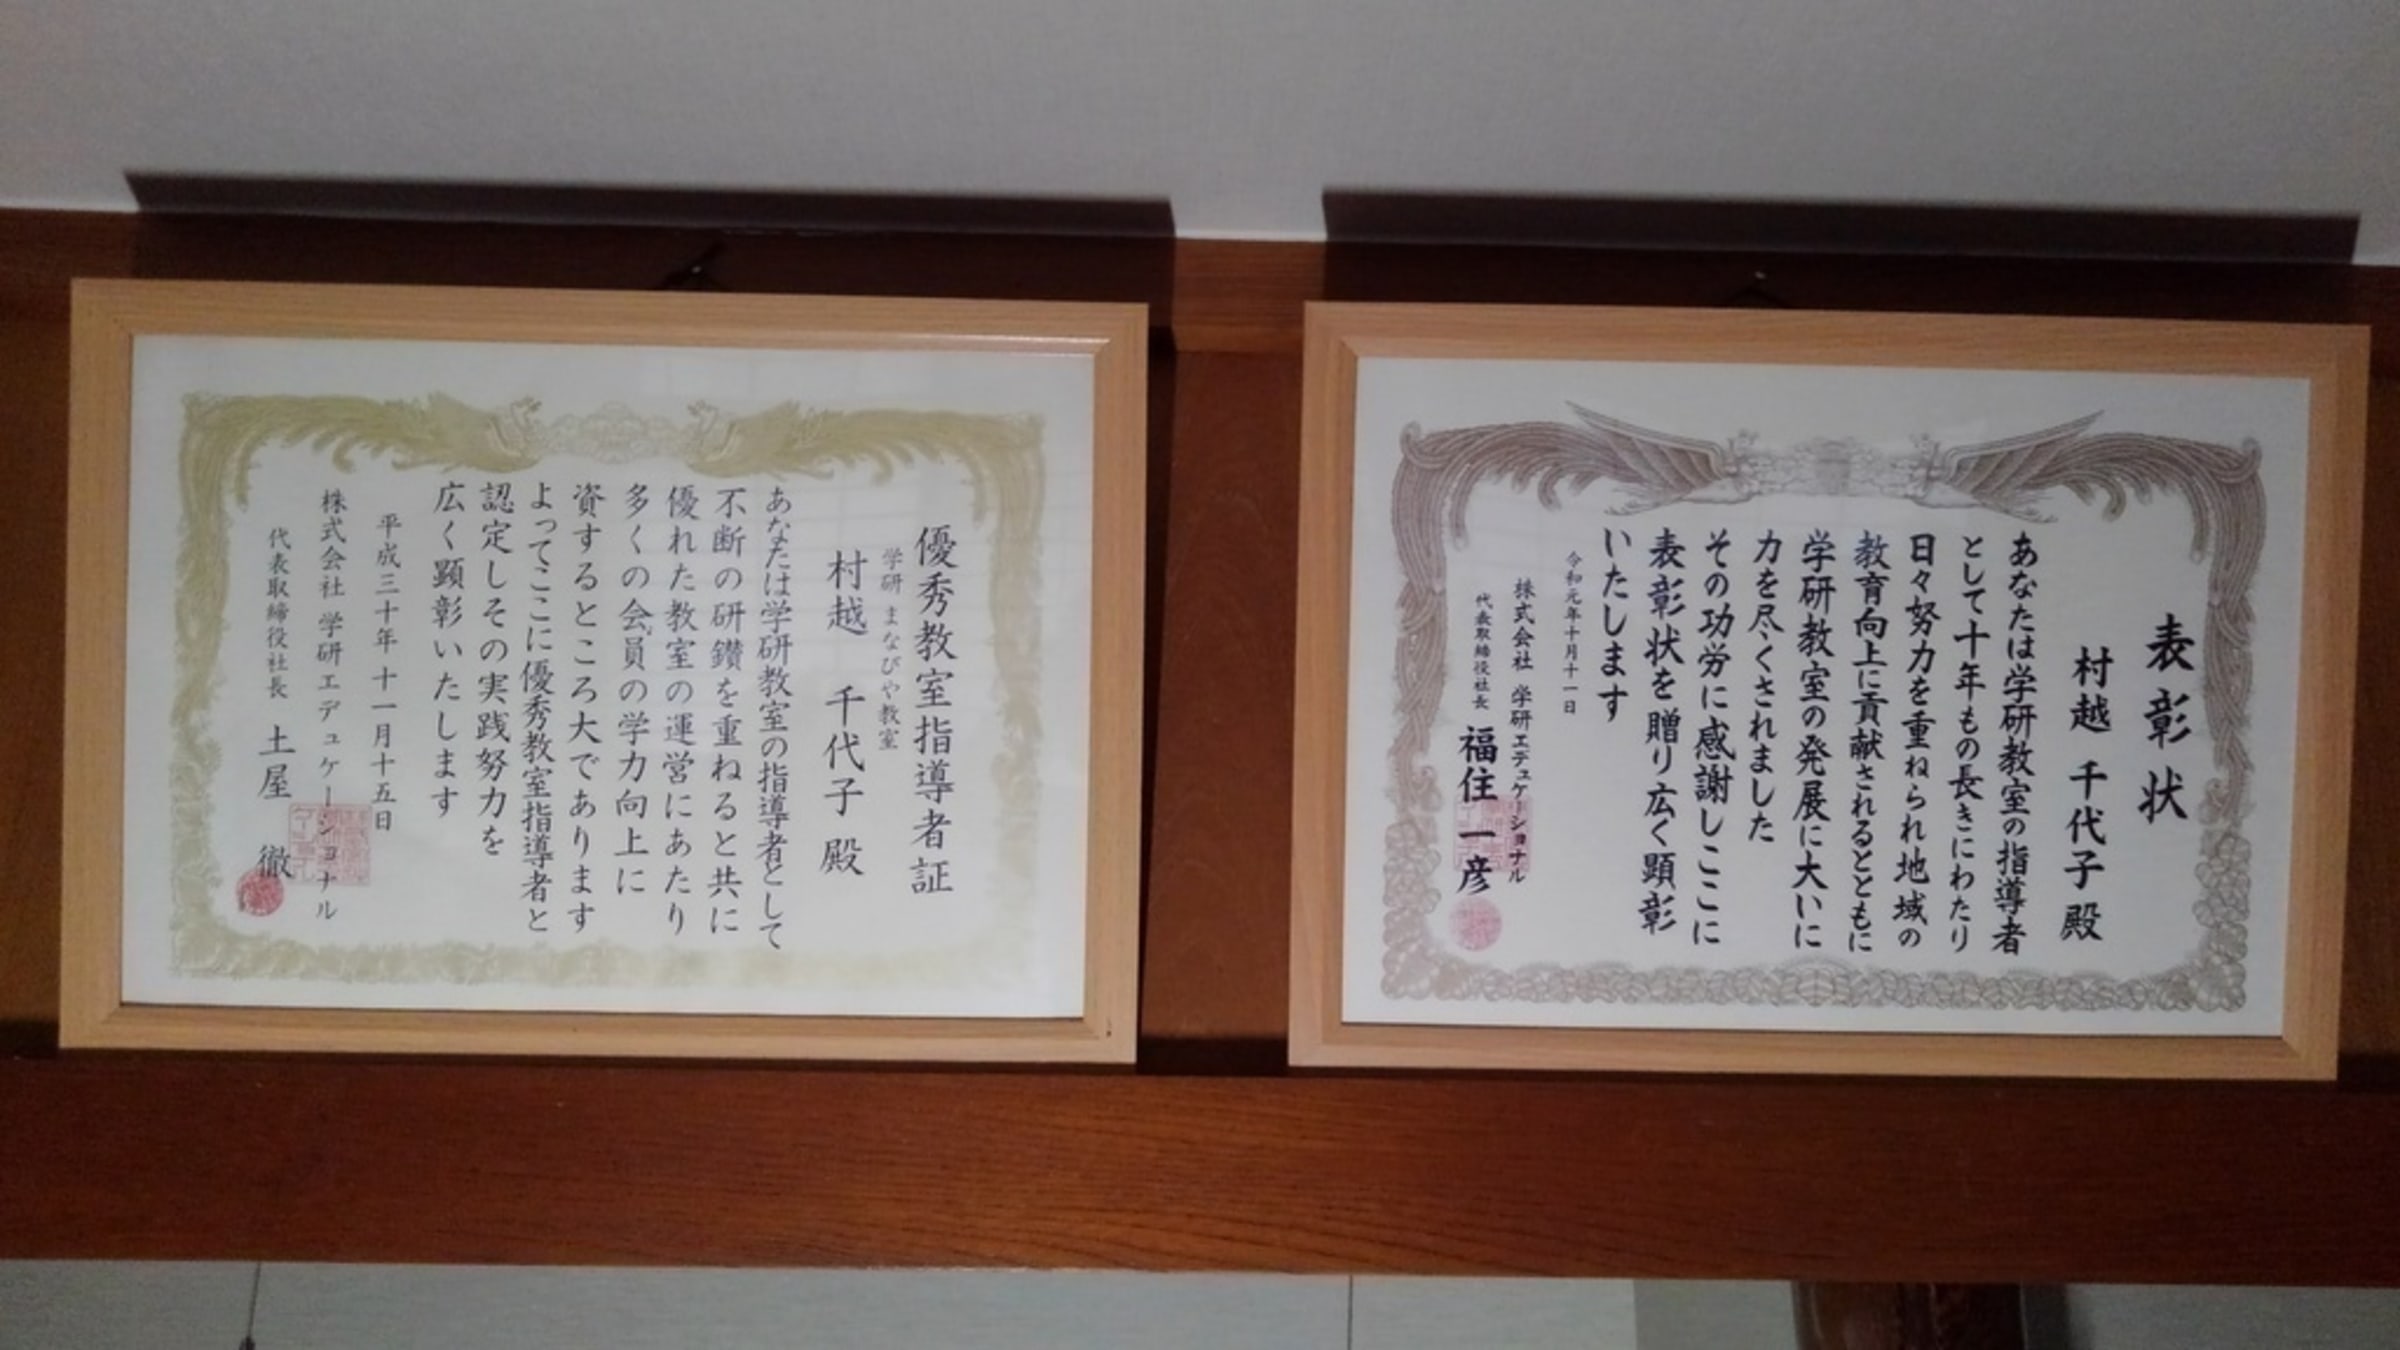 優秀教室指導者証
学研 まなびや教室
村越 千代子 殿
あなたは学研教室の指導者として
不断の研鑽を重ねると共に
優れた教室の運営にあたり
多くの会員の学力向上に
資するところ大であります
よってここに優秀教室指導者と
認定しその実践努力を
広く顕彰いたします
平成三十年 十一月十五日
株式会社 学研エデュケーショナル
代表取締役社長 土屋 徹
表彰状
村越 千代子 殿
あなたは学研教室の指導者
として十年もの長きにわたり
日々努力を重ねられ地域の
教育向上に貢献されるとともに
学研教室の発展に大いに
力を尽くされました
その功労に感謝しここに
表彰状を贈り広く顕彰
いたします
令和元年十月十一日
株式会社 学研エデュケーショナル
代表取締役社長 福住 一彦